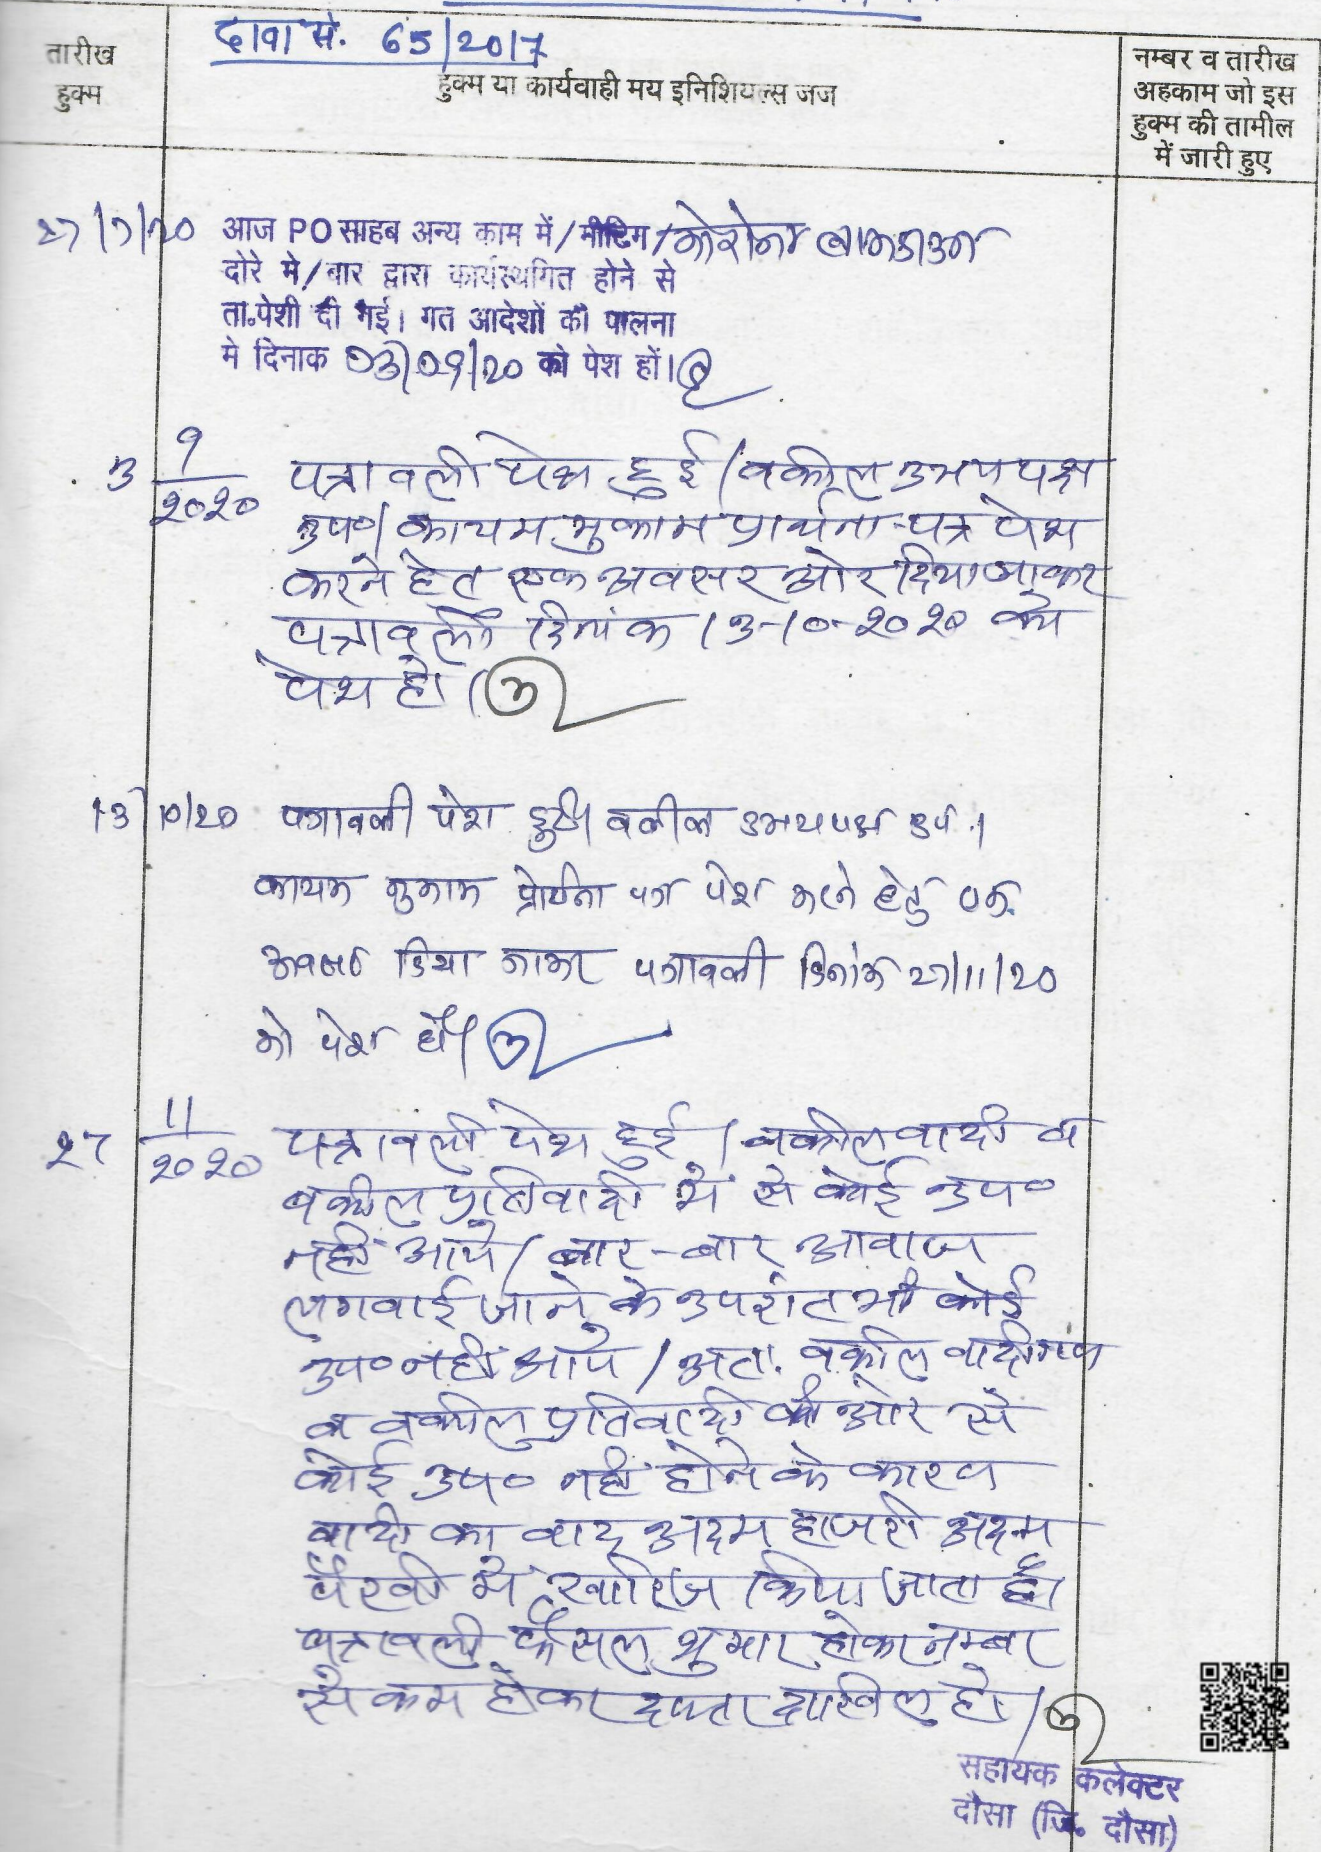 दावा सं. 65/2017
तारीख
हुक्म
हुक्म या कार्यवाही मय इनिशियल्स जज
नम्बर व तारीख
अहकाम जो इस
हुक्म की तामील
में जारी हुए
27/7/20 आज PO साहब अन्य काम में/मीटिंग/कोरोना लाकडाउन
दोरे मे/बार द्वारा कार्यस्थगित होने से
ता.पेशी दी गई। गत आदेशों की पालना
मे दिनाक 03/09/20 को पेश हों।
3 9/2020 पत्रावली पेश हुई। वकील उभयपक्ष
उप०। कायम मुकाम प्रार्थना-पत्र पेश
करने हेतु एक अवसर ओर दिया जाकर
पत्रावली दिनांक 13-10-2020 को
पेश हो।
13/10/20 पत्रावली पेश हुई। वकील उभयपक्ष उप.।
कायम मुकाम प्रार्थना पत्र पेश करने हेतु एक
अवसर दिया जाकर पत्रावली दिनांक 27/11/20
को पेश हो।
27 11/2020 पत्रावली पेश हुई। वकील वादी व
वकील प्रतिवादी में से कोई उप०
नहीं आये। बार-बार आवाज
लगवाई जाने के उपरांत भी कोई
उप० नहीं आये। अतः वकील वादीगण
व वकील प्रतिवादी की ओर से
कोई उप० नहीं होने के कारण
वादी का वाद अदम हाजरी अदम
पैरवी में खारिज किया जाता है।
पत्रावली फैसल शुमार होकर नम्बर
से कम होकर दफ्तर दाखिल हो।
सहायक कलेक्टर
दौसा (जि. दौसा)